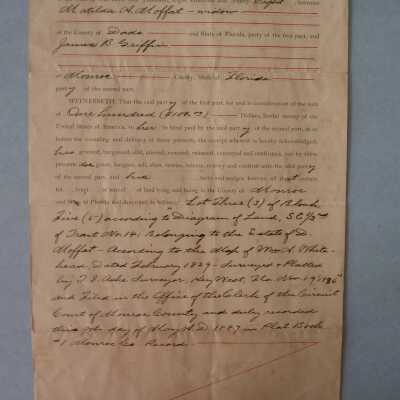 Matilda A. Moffat - widow
of the County of Dade and State of Florida, party of the first part, and
James B. Griffin
Monroe County, State of Florida
party of the second part.
WITNESSETH, That the said party of the first part, for and in consideration of the sum
of One hundred ($100.00) Dollars, lawful money of the
United States of America, to her in hand paid by the said party of the second part, at or
before the ensealing and delivery of these presents, the receipt whereof is hereby acknowledged,
has granted, bargained, sold, aliened, remised, released, conveyed and confirmed, and by these
presents does grant, bargain, sell, alien, remise, release, convey and confirm unto the said party
of the second part and his heirs and assigns forever, all that certain
lot of land lying and being in the County of Monroe
and State of Florida and described as follows: Lot Three (3) of Block
Five (5) according to Diagram of Land, S.E.
of Tract No. 14; Belonging to the Estate of D.
Moffat - Acording to the Map of Wm A White-
head, Dated February 1829 - Surveyed & Platted
by T. J. Ashe Surveyor, Key West, Fla Nov
and Filed in the Office of the Clerk of the Circuit
Court of Monroe County and duly recorded
this day of May A.D. 1887 in Plat Book
1 Monroe Co Record